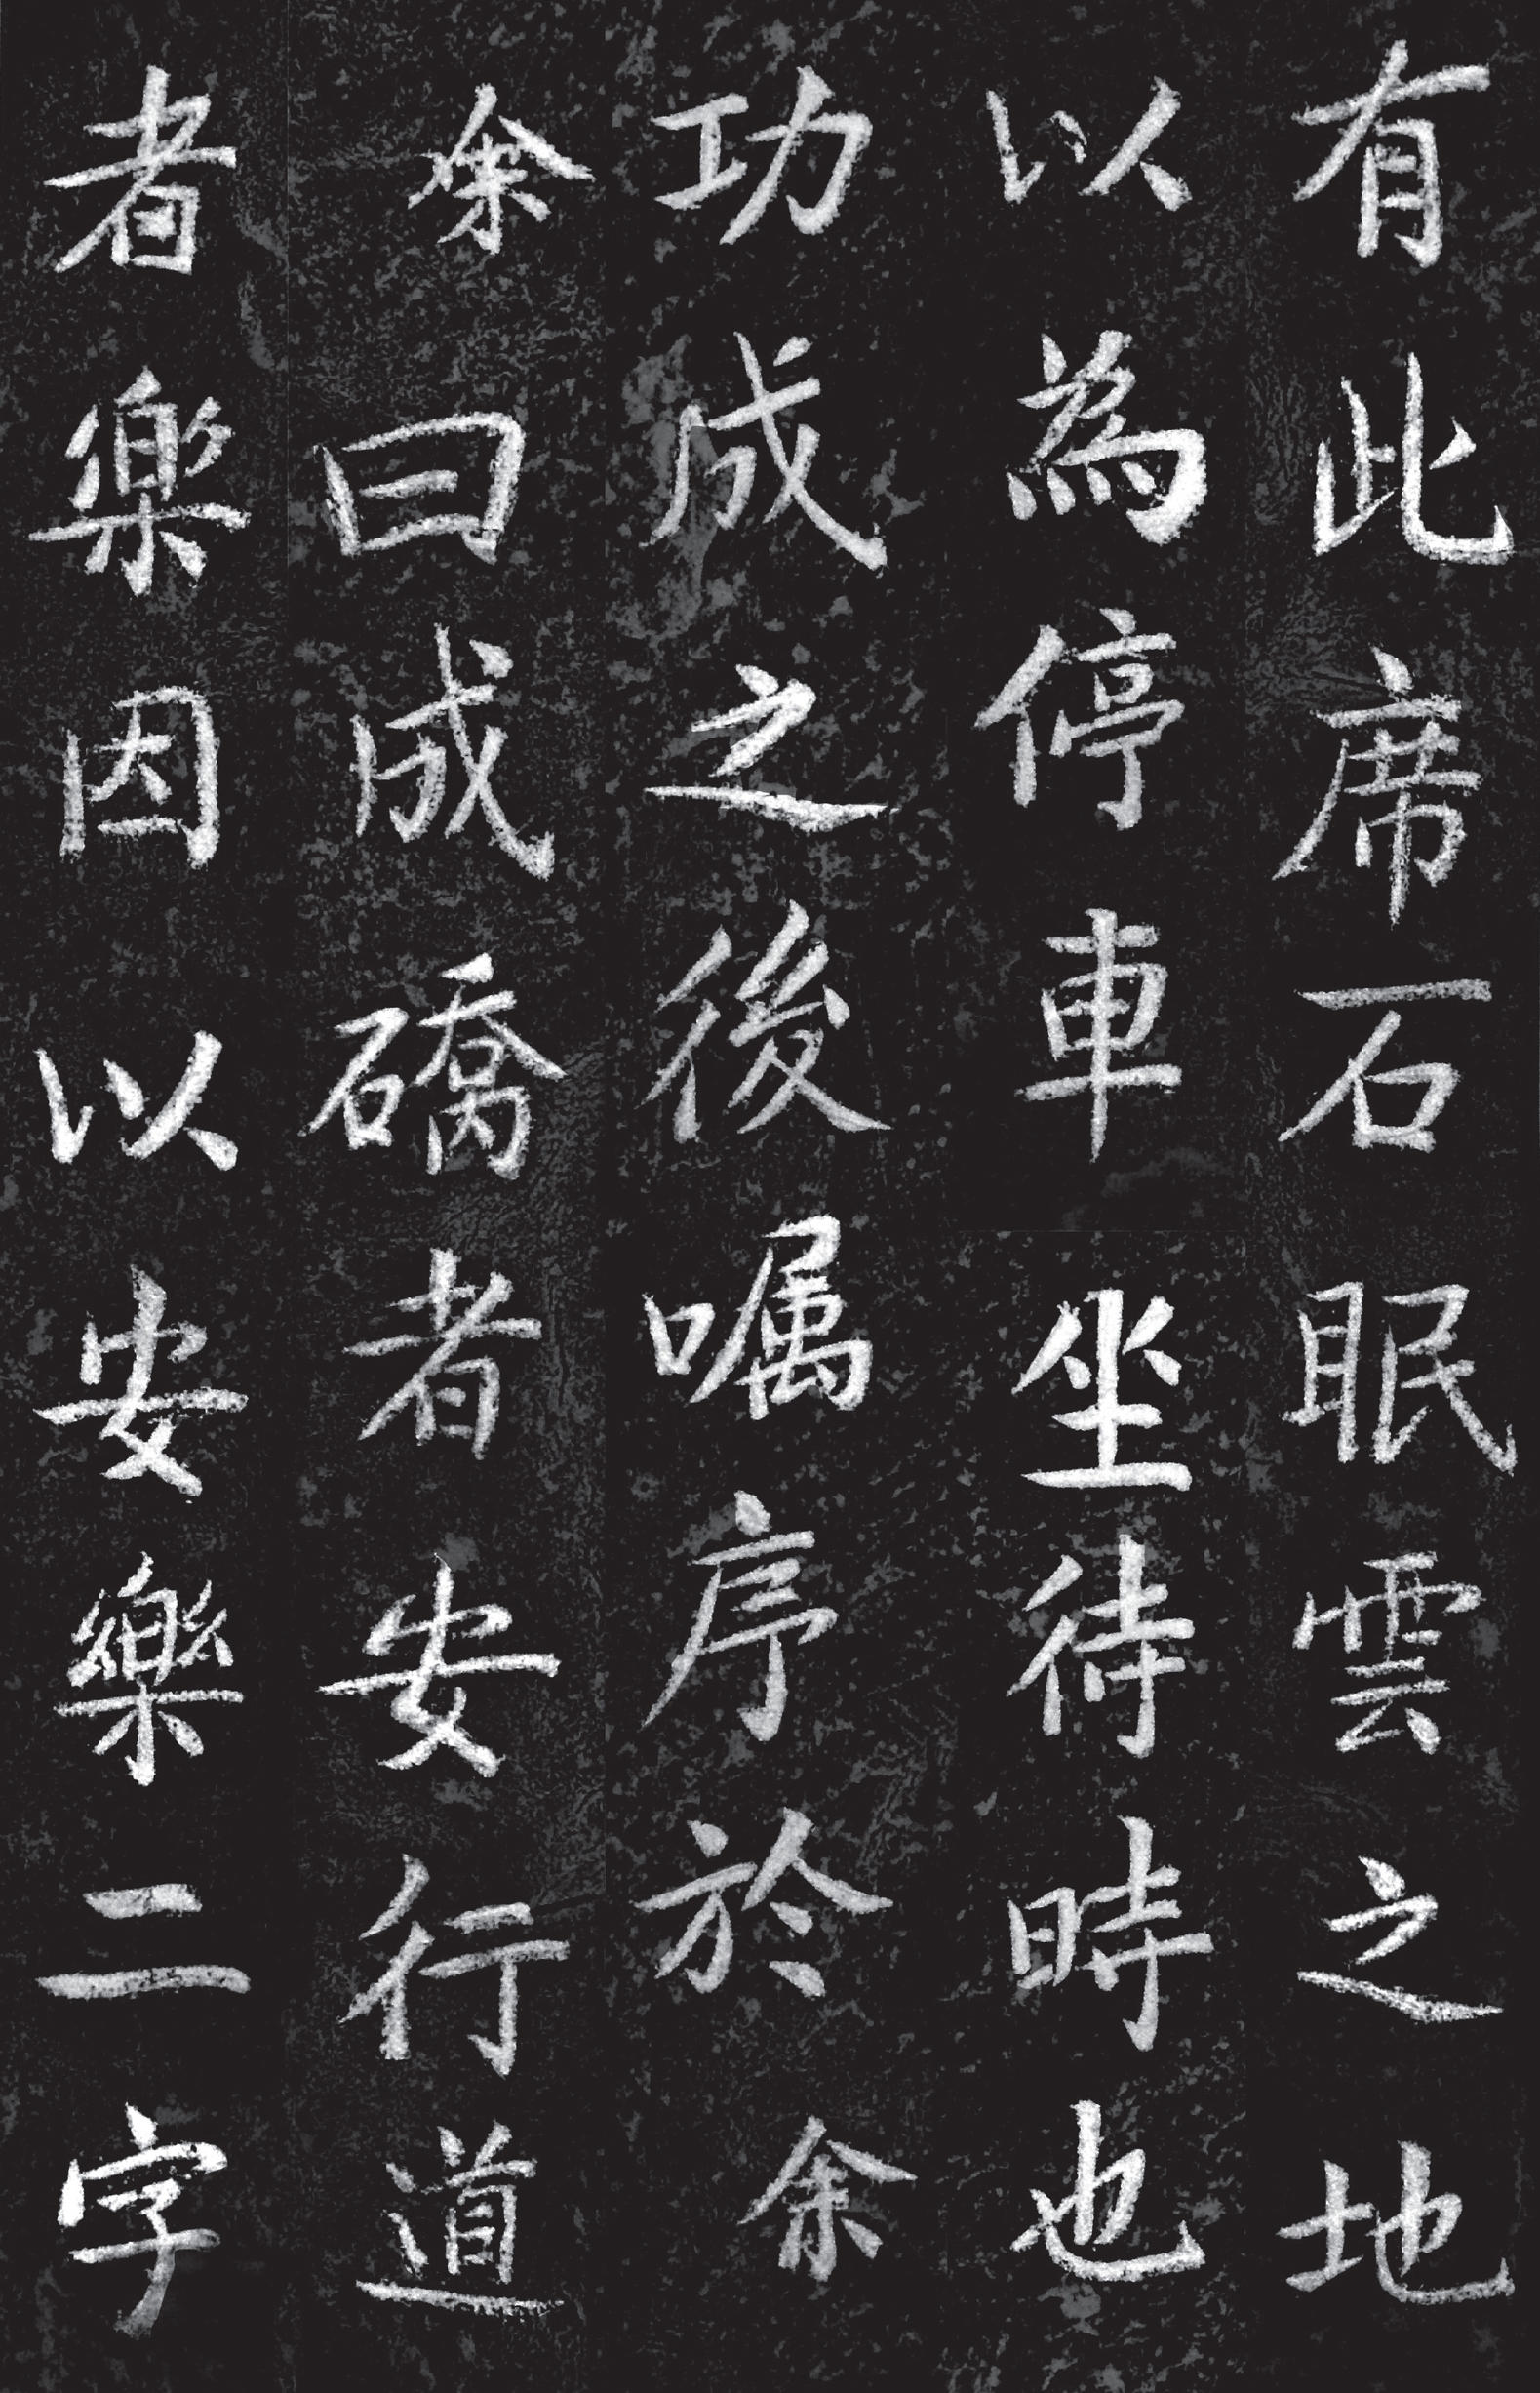 有此席石眠雲之地
以為停車坐待時也
功成之後嘱序於余
余曰成礄者安行道
者楽因以安樂二字